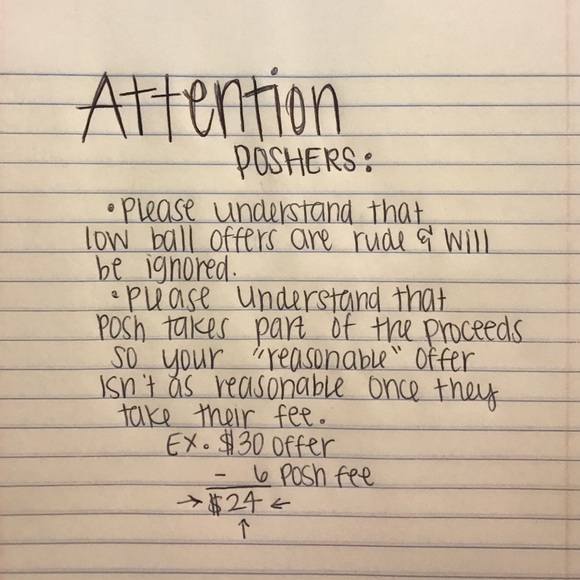 Attention
POSHERS:
• please understand that
low ball offers are rude & will
be ignored.
• please understand that
posh takes part of the proceeds
so your "reasonable" offer
isn't as reasonable once they
take their fee.
EX. $30 offer
- 6 Posh fee
→ $24 ←
↑